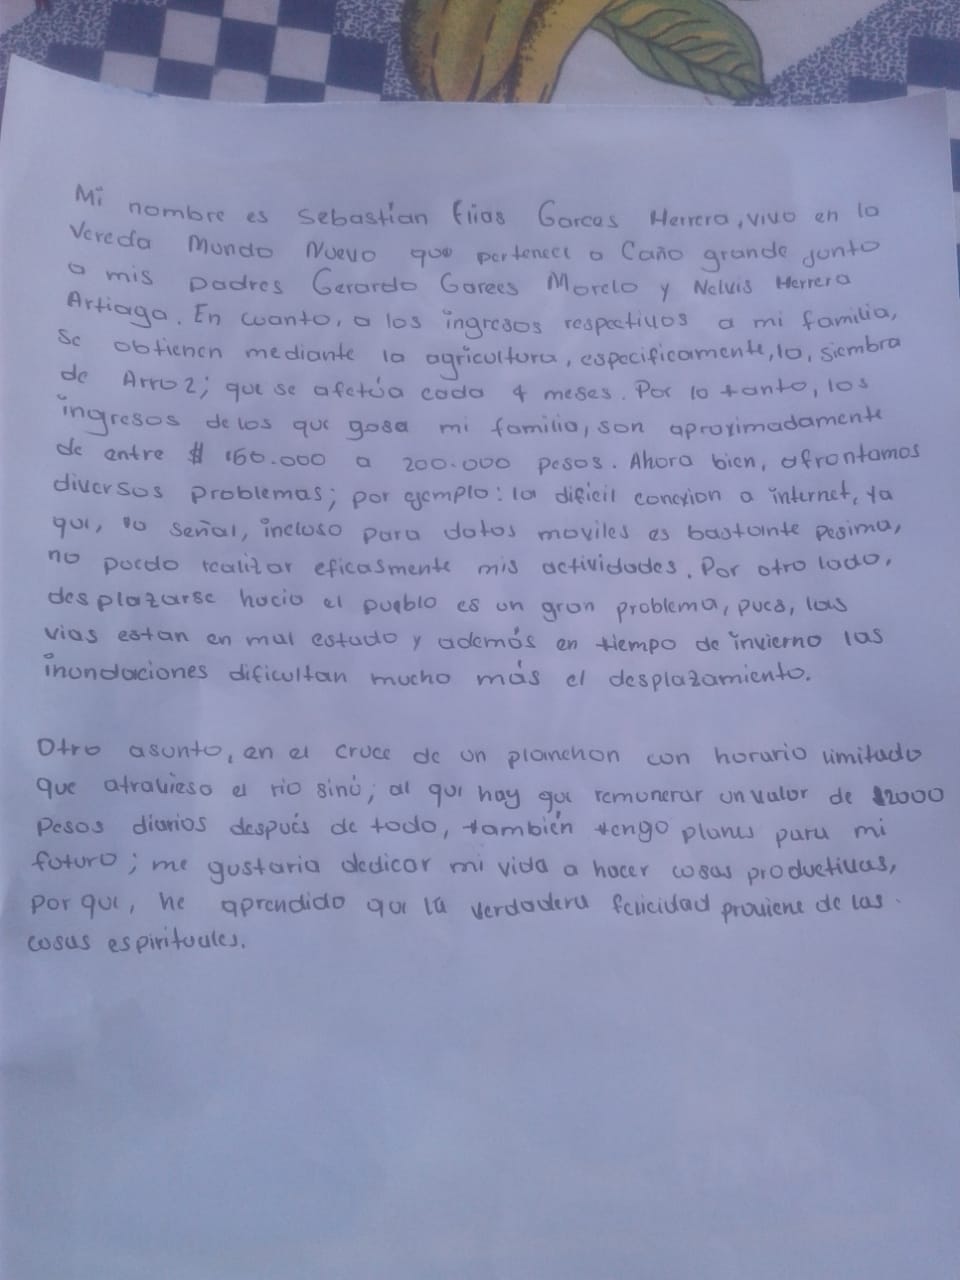 Mi nombre es Sebastían Elias Garces Herrera, vivo en la
Vereda Mundo Nuevo que pertenece a Caño grande junto
a mis padres Gerardo Garces Morelo y Nelvis Herrera
Artiaga. En cuanto, a los ingresos respectivos a mi familia,
se obtienen mediante la agricultura, especificamente, la, siembra
de Arroz; que se afetúa cada 4 meses. Por lo tanto, los
ingresos de los que gosa mi familia, son aproximadamente
de entre $ 160.000 a 200.000 pesos. Ahora bien, afrontamos
diversos problemas; por ejemplo: la dificil conexion a internet, ya
que, la señal, incluso para datos moviles es bastante pesima,
no puedo realizar eficasmente mis actividades. Por otro lado,
desplazarse hacia el pueblo es un gran problema, pues, las
vias estan en mal estado y además en tiempo de invierno las
inundaciones dificultan mucho más el desplazamiento.

Otro asunto, en el cruce de un planchon con horario limitado
que atravieso el rio sinú; al que hay que remunerar un valor de $2000
Pesos diarios después de todo, también tengo planes para mi
futuro; me gustaria dedicar mi vida a hacer cosas productivas,
por que, he aprendido que la verdadera felicidad proviene de las
cosas espirituales.